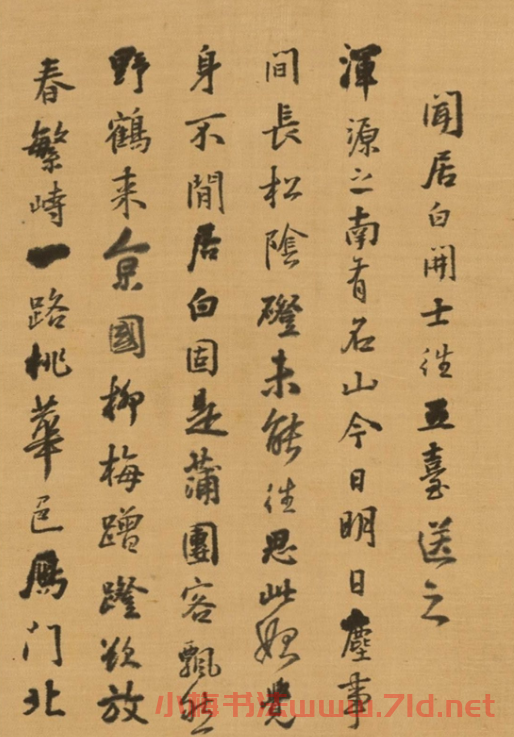 聞居白開士往五臺送之
渾源之南有名山今日明日塵事
間長松陰磴未能往思此始覺
身不閒居白固是蒲團客飄然
野鶴来京國柳梅蹭蹬欲放
春繁峙一路桃華邑雁门北
小梅书法www.7ld.net